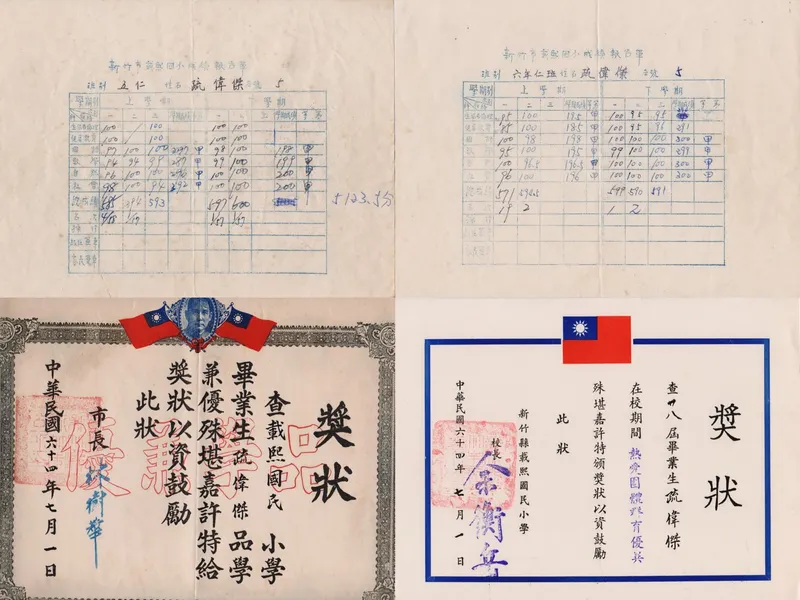 新竹市載熙國小成績報告單
班別 五仁 姓名 疏偉傑 座號 5
學期別 上學期 下學期
一 二 三 一 二 三
100 100 100 100
100 100 100
97 100 100 297 甲 98 100 198 甲
94 94 99 287 甲 99 100 199 甲
96 100 100 296 甲 100 100 200 甲
98 100 94 292 甲 100 100 200 甲
593 597 600
5123.5分
新竹市載熙國小成績報告單
六年仁班 姓名 疏偉傑 座號 5
學期別 上學期 下學期
一 二 三 一 二 三
95 100 195 甲 100 95 95
95 100 195 甲 100 95 96 291
100 98 198 甲 100 100 100 300 甲
95 100 195 甲 99 100 100 299 甲
100 96.5 196.5 甲 100 100 100 300 甲
96 100 196 甲 100 100 100 300 甲
599 590 591
19 2 1 2
獎狀
查載熙國民小學
畢業生疏偉傑品學
兼優殊堪嘉許特給
獎狀以資鼓勵
此狀
市長 林樹華
中華民國六十四年七月一日
品學兼優
獎狀
查廿八屆畢業生疏偉傑
在校期間熱愛團體
殊堪嘉許特頒獎狀以資鼓勵
此狀
新竹縣載熙國民小學
校長 余衡岳
中華民國六十四年七月一日